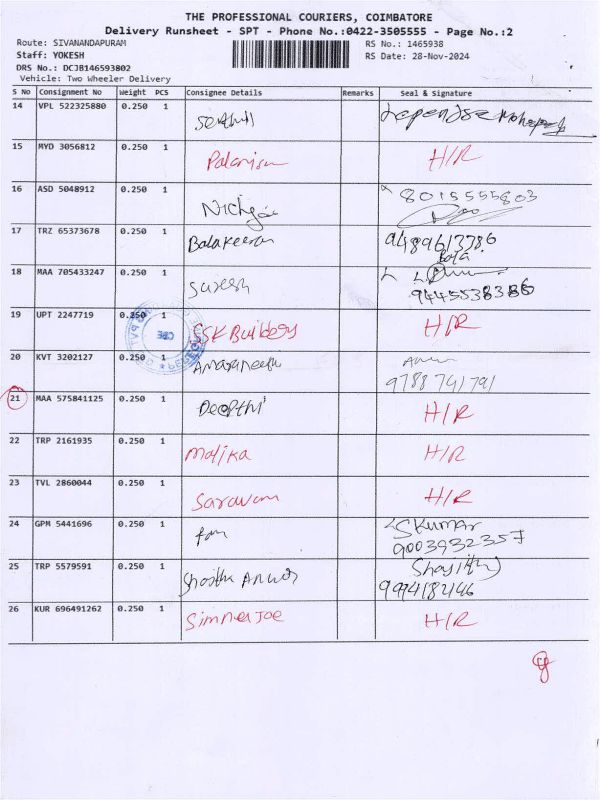 THE PROFESSIONAL COURIERS, COIMBATORE
Delivery Runsheet - SPT - Phone No.:0422-3505555 - Page No.:2
Route: SIVANANDAPURAM RS No.: 1465938
Staff: YOKESH RS Date: 28-Nov-2024
DRS No.: DCJB146593802
Vehicle: Two Wheeler Delivery
S No Consignment No Weight PCS Consignee Details Remarks Seal & Signature
14 VPL 522325880 0.250 1 Senthil
15 MYD 3056812 0.250 1 Palanisam H/R
16 ASD 5048912 0.250 1 8015555803
17 TRZ 65373678 0.250 1 Balakeeran 9489613786
Bala
18 MAA 705433247 0.250 1 Suresh
9445538386
19 UPT 2247719 0.250 1 SSK Builders H/R
20 KVT 3202127 0.250 1 Amaraneethi
9788741791
21 MAA 575841125 0.250 1 Deepthi H/R
22 TRP 2161935 0.250 1 Malika H/R
23 TVL 2860044 0.250 1 Saravan H/R
24 GPM 5441696 0.250 1 SKumar
9003932357
25 TRP 5579591 0.250 1
26 KUR 696491262 0.250 1 Simner Joe H/R